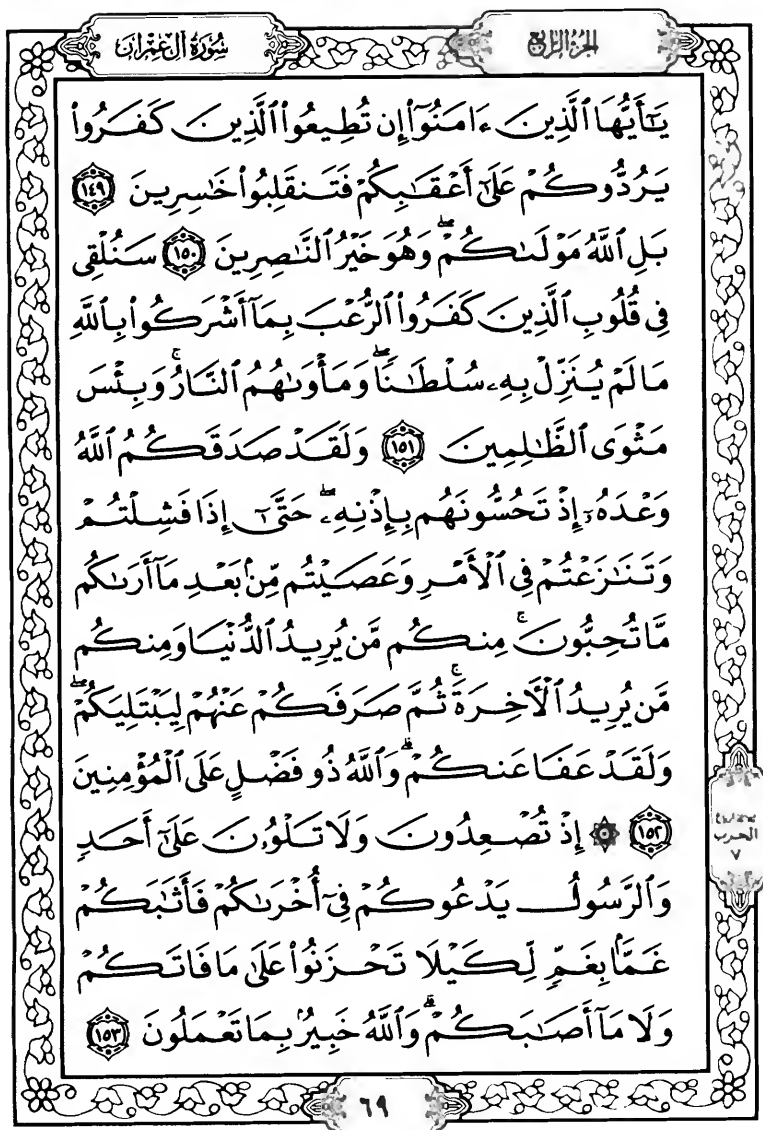 الجزء الرابع
سُورَةُ آلِ عِمْرَانَ
يَٰٓأَيُّهَا ٱلَّذِينَ ءَامَنُوٓا۟ إِن تُطِيعُوا۟ ٱلَّذِينَ كَفَرُوا۟
يَرُدُّوكُمْ عَلَىٰٓ أَعْقَٰبِكُمْ فَتَنقَلِبُوا۟ خَٰسِرِينَ ١٤٩
بَلِ ٱللَّهُ مَوْلَىٰكُمْ ۖ وَهُوَ خَيْرُ ٱلنَّٰصِرِينَ ١٥٠ سَنُلْقِى
فِى قُلُوبِ ٱلَّذِينَ كَفَرُوا۟ ٱلرُّعْبَ بِمَآ أَشْرَكُوا۟ بِٱللَّهِ
مَا لَمْ يُنَزِّلْ بِهِۦ سُلْطَٰنًا ۖ وَمَأْوَىٰهُمُ ٱلنَّارُ ۚ وَبِئْسَ
مَثْوَى ٱلظَّٰلِمِينَ ١٥١ وَلَقَدْ صَدَقَكُمُ ٱللَّهُ
وَعْدَهُۥٓ إِذْ تَحُسُّونَهُم بِإِذْنِهِۦ ۖ حَتَّىٰٓ إِذَا فَشِلْتُمْ
وَتَنَٰزَعْتُمْ فِى ٱلْأَمْرِ وَعَصَيْتُم مِّنۢ بَعْدِ مَآ أَرَىٰكُم
مَّا تُحِبُّونَ ۚ مِنكُم مَّن يُرِيدُ ٱلدُّنْيَا وَمِنكُم
مَّن يُرِيدُ ٱلْءَاخِرَةَ ۚ ثُمَّ صَرَفَكُمْ عَنْهُمْ لِيَبْتَلِيَكُمْ ۖ
وَلَقَدْ عَفَا عَنكُمْ ۗ وَٱللَّهُ ذُو فَضْلٍ عَلَى ٱلْمُؤْمِنِينَ
١٥٢ ۞ إِذْ تُصْعِدُونَ وَلَا تَلْوُۥنَ عَلَىٰٓ أَحَدٍ
وَٱلرَّسُولُ يَدْعُوكُمْ فِىٓ أُخْرَىٰكُمْ فَأَثَٰبَكُمْ
غَمًّۢا بِغَمٍّ لِّكَيْلَا تَحْزَنُوا۟ عَلَىٰ مَا فَاتَكُمْ
وَلَا مَآ أَصَٰبَكُمْ ۗ وَٱللَّهُ خَبِيرٌۢ بِمَا تَعْمَلُونَ ١٥٣
الحزب
٧
٦٩